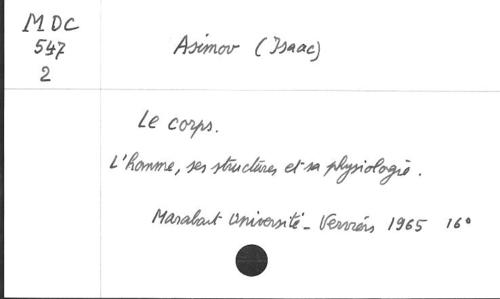 MDC
547
2
Asimov (Isaac)
Le corps.
L'homme, ses structures et sa physiologie.
Marabout Université - Verviers 1965 16°